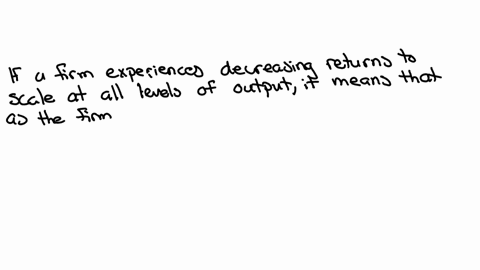 If a firm experiences decreasing returns to
scale at all levels of output, it means that
as the firm